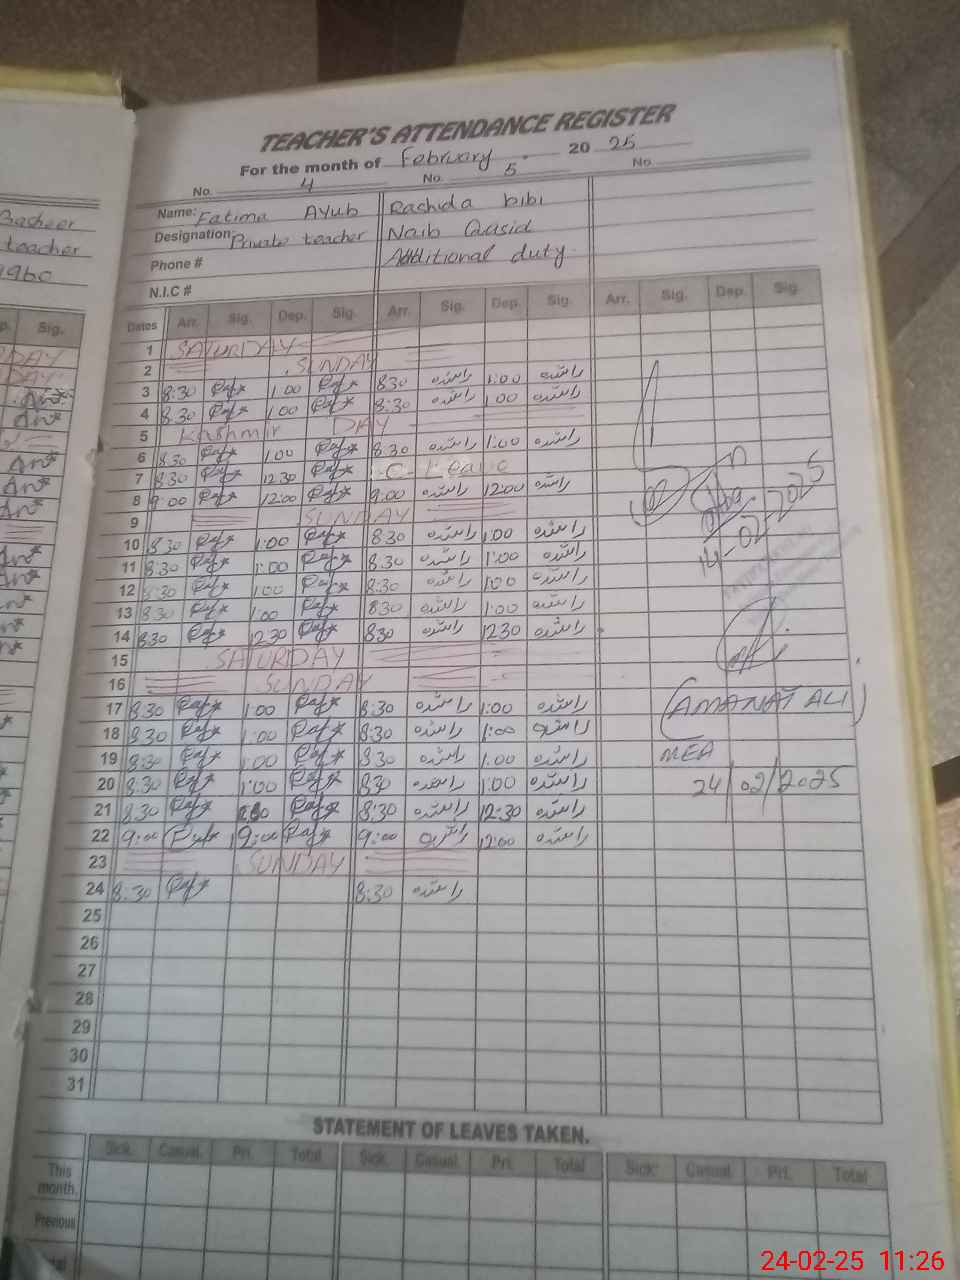 TEACHER'S ATTENDANCE REGISTER
For the month of February 2025
No. 4 No. 5 No.
Name: Fatima Ayub Rashida bibi
Designation: Private teacher Naib Qasid
Phone # Additional duty
N.I.C #
Basheer
teacher
Sig.
Dates Arr. Sig. Dep. Sig. Arr. Sig. Dep. Sig. Arr. Sig. Dep. Sig.
1 SATURDAY
2 SUNDAY
3 8:30 1:00 830 راشدہ 1:00 راشدہ
4 8:30 1:00 8:30 راشدہ 1:00 راشدہ
5 Kashmir DAY
6 8:30 1:00 8:30 راشدہ 1:00 راشدہ
7 8:30 12:30 C-Leave
8 9:00 12:00 9:00 راشدہ 12:00 راشدہ
9 SUNDAY
10 8:30 1:00 830 راشدہ 1:00 راشدہ
11 8:30 1:00 8:30 راشدہ 1:00 راشدہ
12 8:30 1:00 8:30 راشدہ 1:00 راشدہ
13 8:30 1:00 830 راشدہ 1:00 راشدہ
14 830 12:30 830 راشدہ 1230 راشدہ
14-02-2025
15 SATURDAY
16 SUNDAY
17 8:30 1:00 8:30 راشدہ 1:00 راشدہ
(AMANAT ALI)
18 8:30 1:00 8:30 راشدہ 1:00 راشدہ
19 8:30 1:00 830 راشدہ 1:00 راشدہ
MEA
20 8:30 1:00 830 راشدہ 1:00 راشدہ
24/02/2025
21 8:30 8:30 راشدہ 12:30 راشدہ
22 9:00 12:00 9:00 راشدہ 12:00 راشدہ
23 SUNDAY
24 8:30 8:30 راشدہ
25
26
27
28
29
30
31
STATEMENT OF LEAVES TAKEN.
Sick. Casual. Pri. Total Sick. Casual. Pri. Total Sick. Casual. Pri. Total
This month.
Previous
24-02-25 11:26